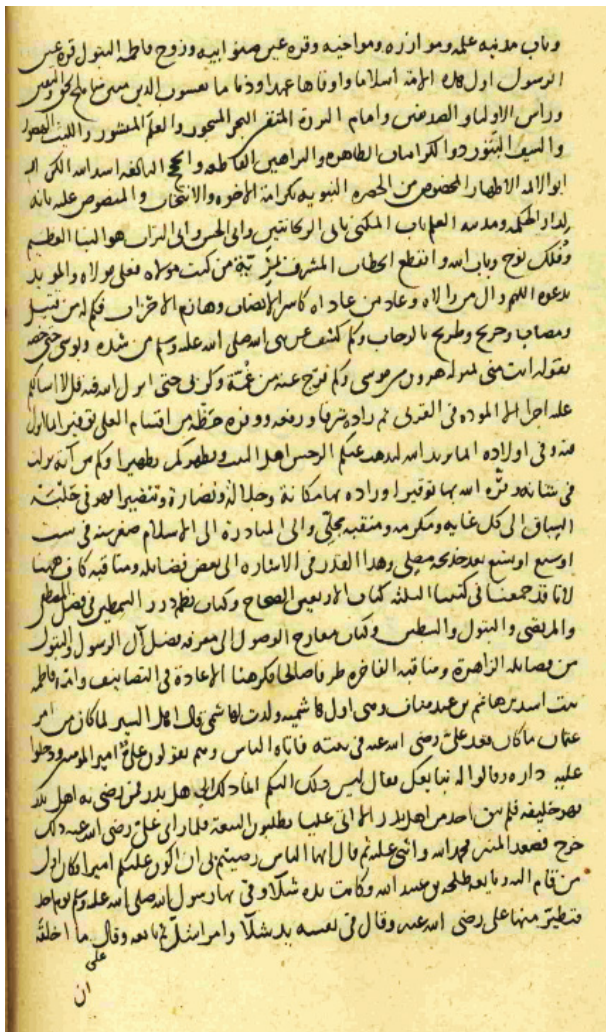 وباب مدينه علمه وموازره ومواخيه وقره عين صنو ابيه وزوج فاطمه البتول قره عين
الرسول اول هذه الامة اسلاما واوفاها عهدا وذماما يعسوب الدين
وراس الاوليا والصديقين وامام البررة المتقين البحر المسجور والعلم المنشور والليث الهصور
والسيف البتور ذو الكرامات الظاهره والبراهين القاطعه والحجج البالغه اسد الله
ابو الائمه الاطهار المخصوص من الحضره النبويه بكرامة الاخوه والانتخاب والمنصوص عليه بانه
لدار الحكمه ومدينه العلم باب المكنى بابى الريحانتين وابى الحسن وابى التراب هو النبا العظيم
وفلك نوح وباب الله وانقطع الخطاب المشرف بمزية من كنت مولاه فعلى مولاه والمويد
بدعوه اللهم وال من والاه وعاد من عاداه كاسر الانصاب وهازم الاحزاب فكم له من قتيل
ومصاب وجريح وطريح بالرحاب وكم كشف عن نبى الله صلى الله عليه وسلم من شده وبوسى حتى خصه
بقوله انت منى بمنزله هرون من موسى وكم فرج عنه من غمة وكربى حتى انزل الله فيه قل لا اسالكم
عليه اجرا الا المودة فى القربى ثم زاده شرفا ورفعه ووفر حظه من اقسام العلى توفيرا
فيه وفى اولاده انما يريد الله ليذهب عنكم الرجس اهل البيت ويطهركم تطهيرا وكم من آية نزلت
فى شانه وقره الله بها توقيرا وزاده بها مكانة وجلالة ونضارة وتنضيرا فهو فى حلبة
السباق الى كل غايه ومكرمه ومنقبه مجلى والى المبادرة الى الاسلام صغر سنه فى ست
او سبع او تسع بعد خديجه مصلى وهذا القدر فى الاشاره الى بعض فضايله ومناقبه كاف ههنا
لانا قد جمعنا فى كتبنا الثلثه كتاب الاربعين الصحاح وكتاب نظم درر السمطين فى فضل المصطفى
والمرتضى والبتول والسبطين وكتاب معارج الوصول الى معرفه فضل آل الرسول والبتول
من فضايله الزاهرة ومناقبه الفاخره طرفا صالحا فكرهنا الاعادة فى التصانيف وامه فاطمه
بنت اسد بن هاشم بن عبد مناف وهى اول هاشميه ولدت لهاشمى قال اهل السير لما كان من امر
عثمان ما كان قعد على رضى الله عنه فى بيته فاتاه الناس وهم يقولون على امير المومنين ودخلوا
عليه داره وقالوا له نبايعك فقال ليس ذلك اليكم انما ذلك الى اهل بدر فمن رضى به اهل بدر
فهو خليفه فلم يبق احد من اهل بدر الا اتى عليا يطلبون البيعة فلما راى على رضى الله عنه ذلك
خرج فصعد المنبر فحمد الله واثنى عليه ثم قال ايها الناس رضيتم بى ان اكون عليكم اميرا فكان اول
من قام اليه وبايعه طلحه بن عبيد الله وكانت يده شلا وقى بها رسول الله صلى الله عليه وسلم يوم احد
فتطير منها على رضى الله عنه وقال فى نفسه يد شلا وامر اشل ثم بايعه وقال ما اخلقه
على
ان